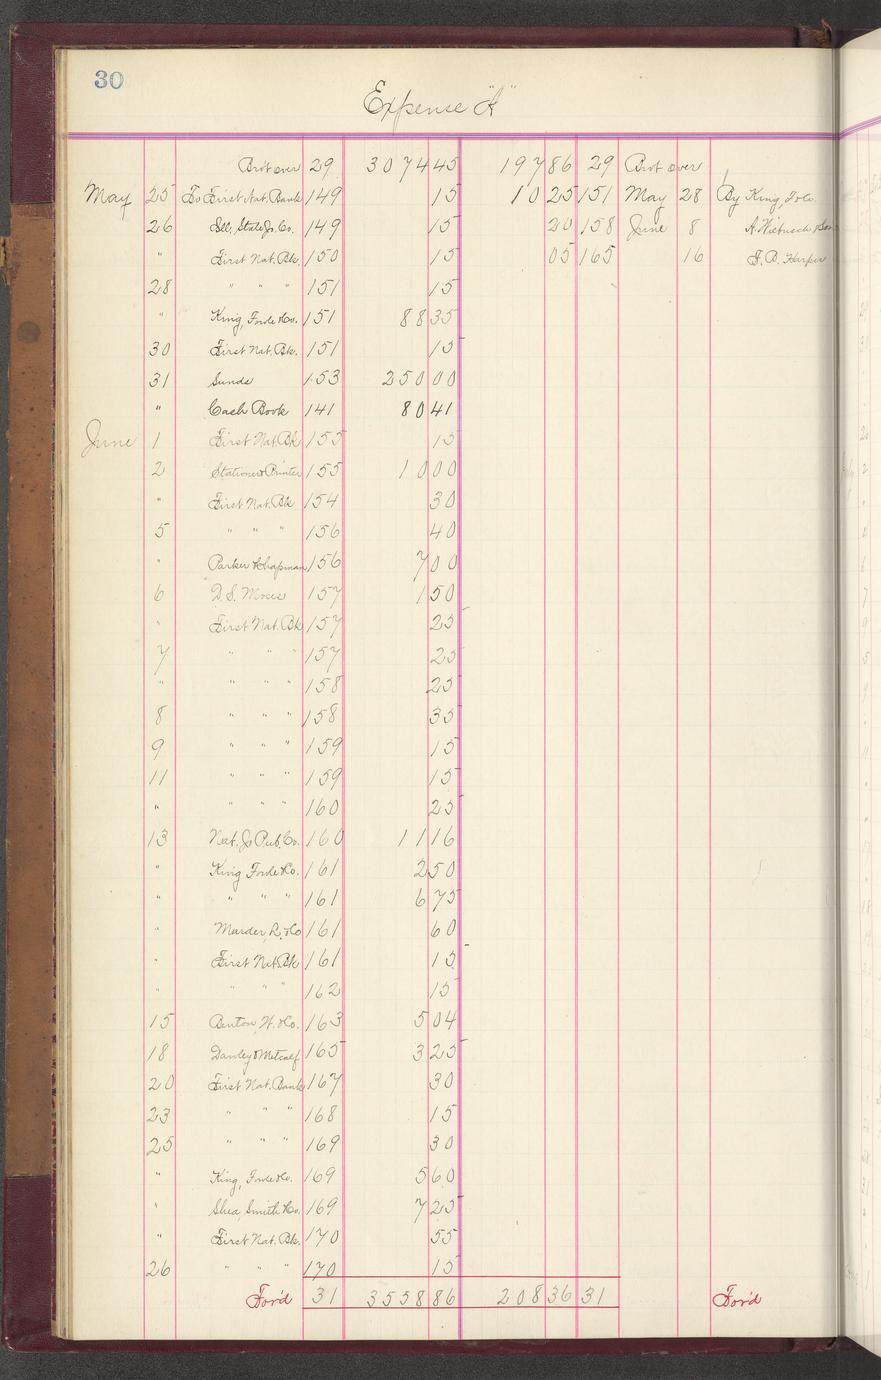 30
Expense "A"
Bro't over 29 3074 45 197 86 29 Brot over
May 25 To First Nat. Bank 149 15 10 25 151 May 28 By King, F & Co.
26 Ill. State Jr. Co. 149 15 20 158 June 8 A. Wiebusch & Son
" First Nat. Bk. 150 15 05 165 16 F. B. Harper
28 " " " 151 15
" King, Fowle & Co. 151 88 35
30 First Nat. Bk. 151 15
31 Sunds 153 250 00
" Cash Book 141 80 41
June 1 First Nat. Bk 155 15
2 Stationer & Printer 155 10 00
" First Nat. Bk 154 30
5 " " " 156 40
" Parker & Chapman 156 7 00
6 D. S. Moses 157 1 50
" First Nat. Bk 157 25
7 " " " 157 25
" " " " 158 25
8 " " " 158 35
9 " " " 159 15
11 " " " 159 15
" " " " 160 25
13 Nat. Jr Pub. Co. 160 11 16
" King Fowle & Co. 161 2 50
" " " " 161 6 75
" Marder, L. & Co 161 60
" First Nat. Bk 161 15
" " " " 162 15
15 Benton, W. & Co. 163 5 04
18 Dawley & Metcalf 165 3 25
20 First Nat. Bank 167 30
23 " " " 168 15
25 " " " 169 30
" King, Fowle & Co. 169 5 60
" Shea Smith & Co. 169 7 25
" First Nat. Bk. 170 55
26 " " " 170 15
For'd 31 3558 86 208 36 31 For'd